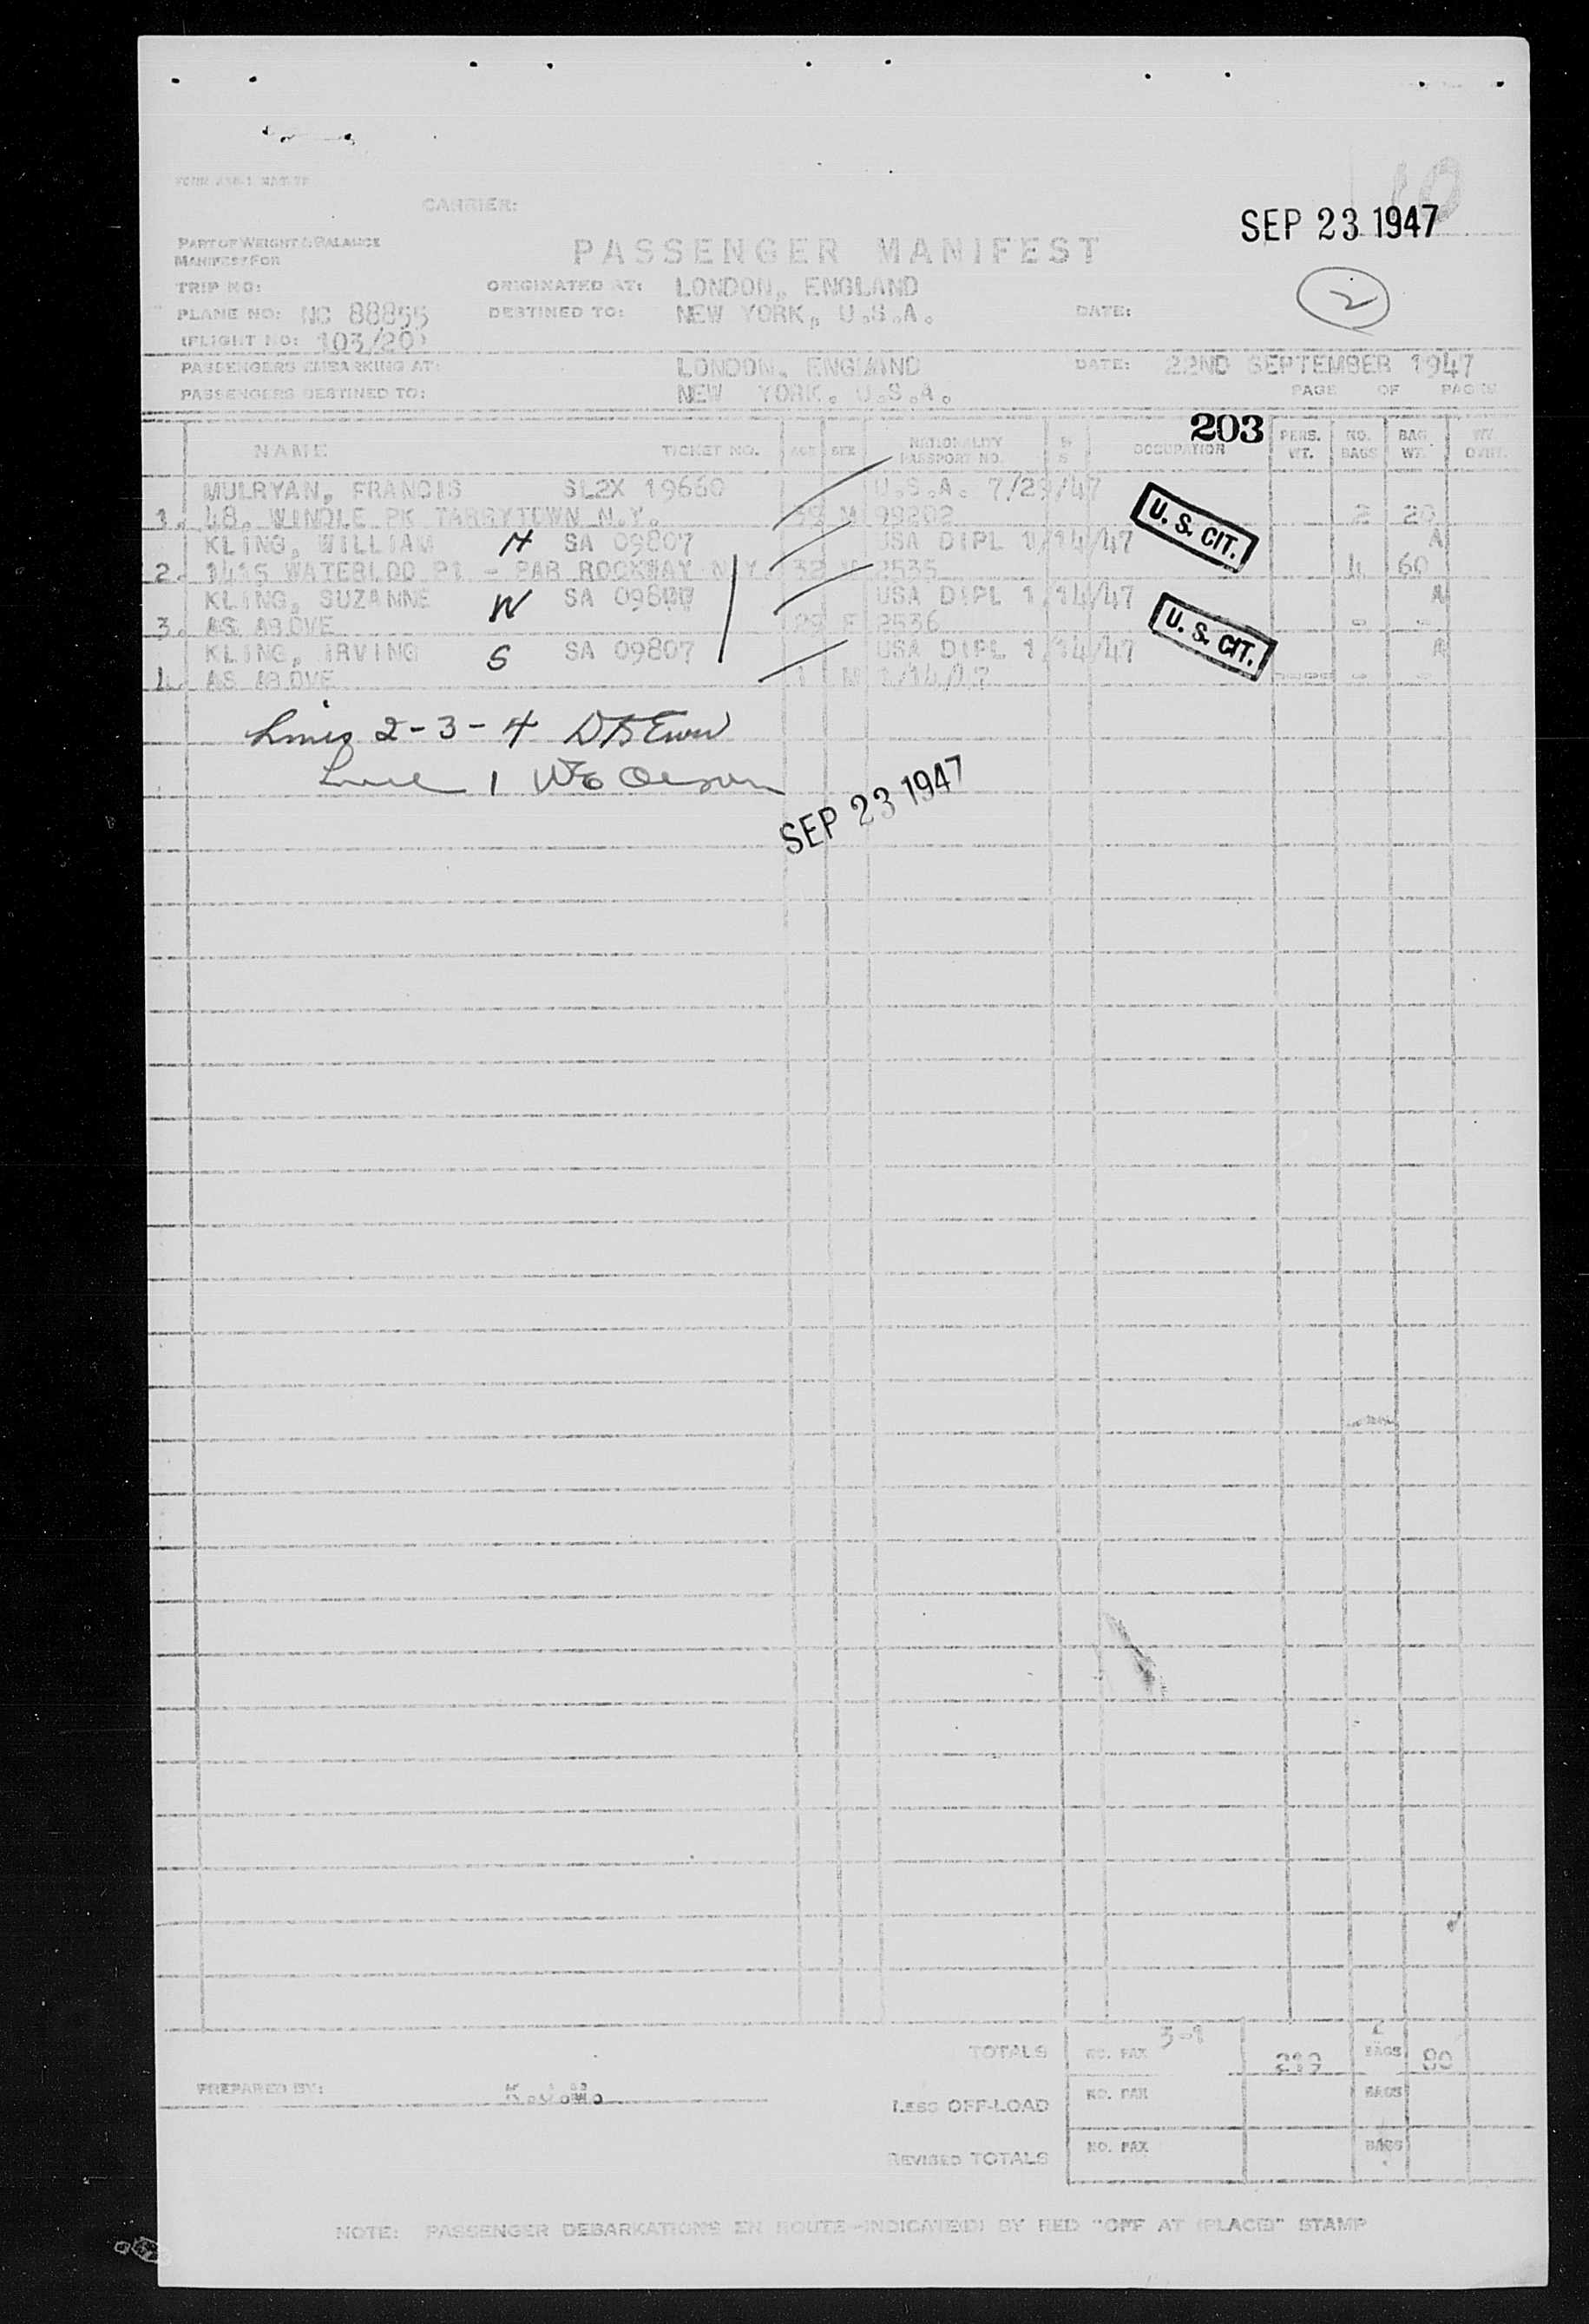 CARRIER:
SEP 23 1947
PART OF WEIGHT & BALANCE
MANIFEST FOR
PASSENGER MANIFEST
2
TRIP NO:
ORIGINATED AT: LONDON, ENGLAND
PLANE NO: NC 88855
DESTINED TO: NEW YORK, U.S.A.
DATE:
(FLIGHT NO: 103/20)
PASSENGERS EMBARKING AT: LONDON, ENGLAND DATE: 22ND SEPTEMBER 1947
PASSENGERS DESTINED TO: NEW YORK. U.S.A. PAGE OF PAGES
203
NAME TICKET NO. AGE SEX NATIONALITY PASSPORT NO. OCCUPATION PERS. WT. NO. BAGS BAG. WT.
MULRYAN, FRANCIS SL2X 19660 U.S.A. 7/29/47
1. 48, WINDLE PK TARRYTOWN N.Y. M 99202 2 20
U. S. CIT.
KLING, WILLIAM H SA 09807 USA DIPL 1/14/47 A
2. 1415 WATERLOO PL - FAR ROCKWAY N.Y. 32 M 2535 4 60
KLING, SUZANNE W SA USA DIPL 1/14/47 A
3. AS ABOVE 29 F 2536 - -
U. S. CIT.
KLING, IRVING S SA 09807 USA DIPL 1/14/47 A
4. AS ABOVE 1 M - -
Lines 2-3-4
Line 1
SEP 23 1947
TOTALS NO. PAX BAGS 80
PREPARED BY:
LESS OFF-LOAD NO. PAX BAGS
REVISED TOTALS NO. PAX BAGS
NOTE: PASSENGER DEBARKATIONS EN ROUTE INDICATED BY RED "OFF AT (PLACE)" STAMP